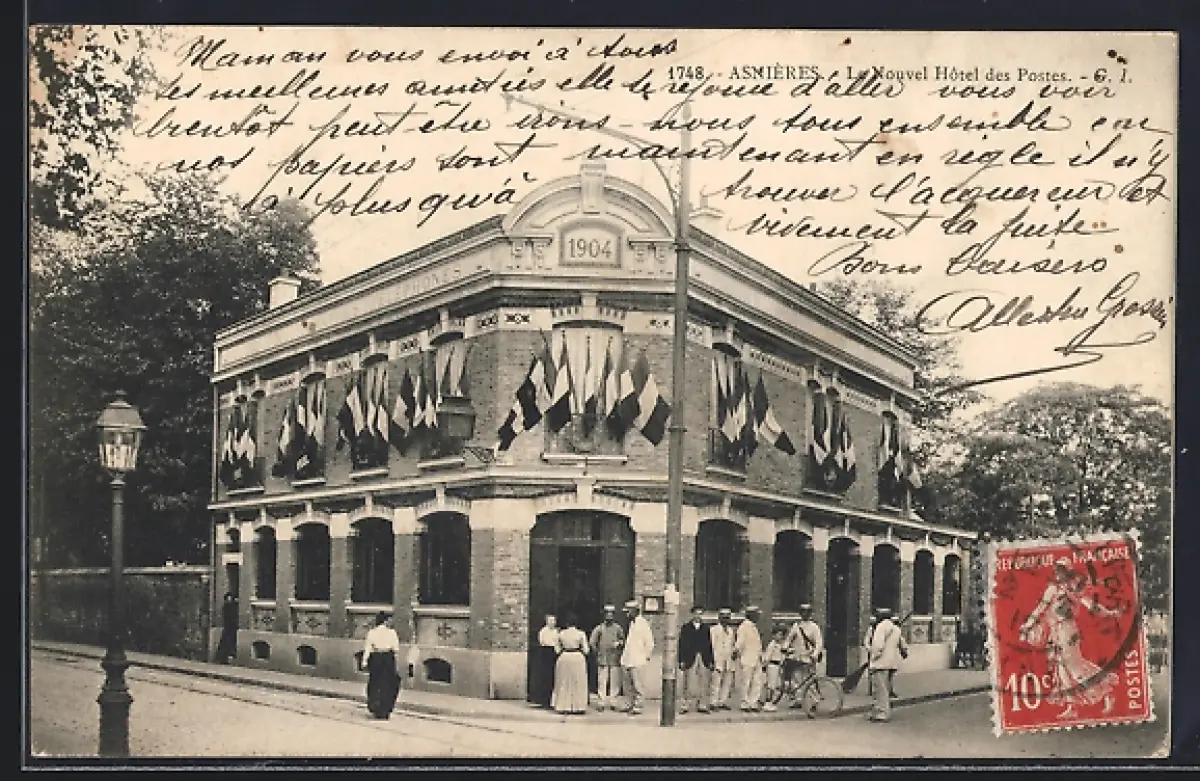 Maman vous envoi à tous
1748. - ASNIÈRES. - Le Nouvel Hôtel des Postes. - G. I.
ses meilleures amitiés elle se rejouie d'aller vous voir
bientôt peut être irons-nous tous ensemble car
nos papiers sont maintenant en règle il n'y
à plus qu'à trouver l'acquereur et
vivement la fuite
Bons baisers
1904
RÉPUBLIQUE FRANÇAISE
10c
POSTES